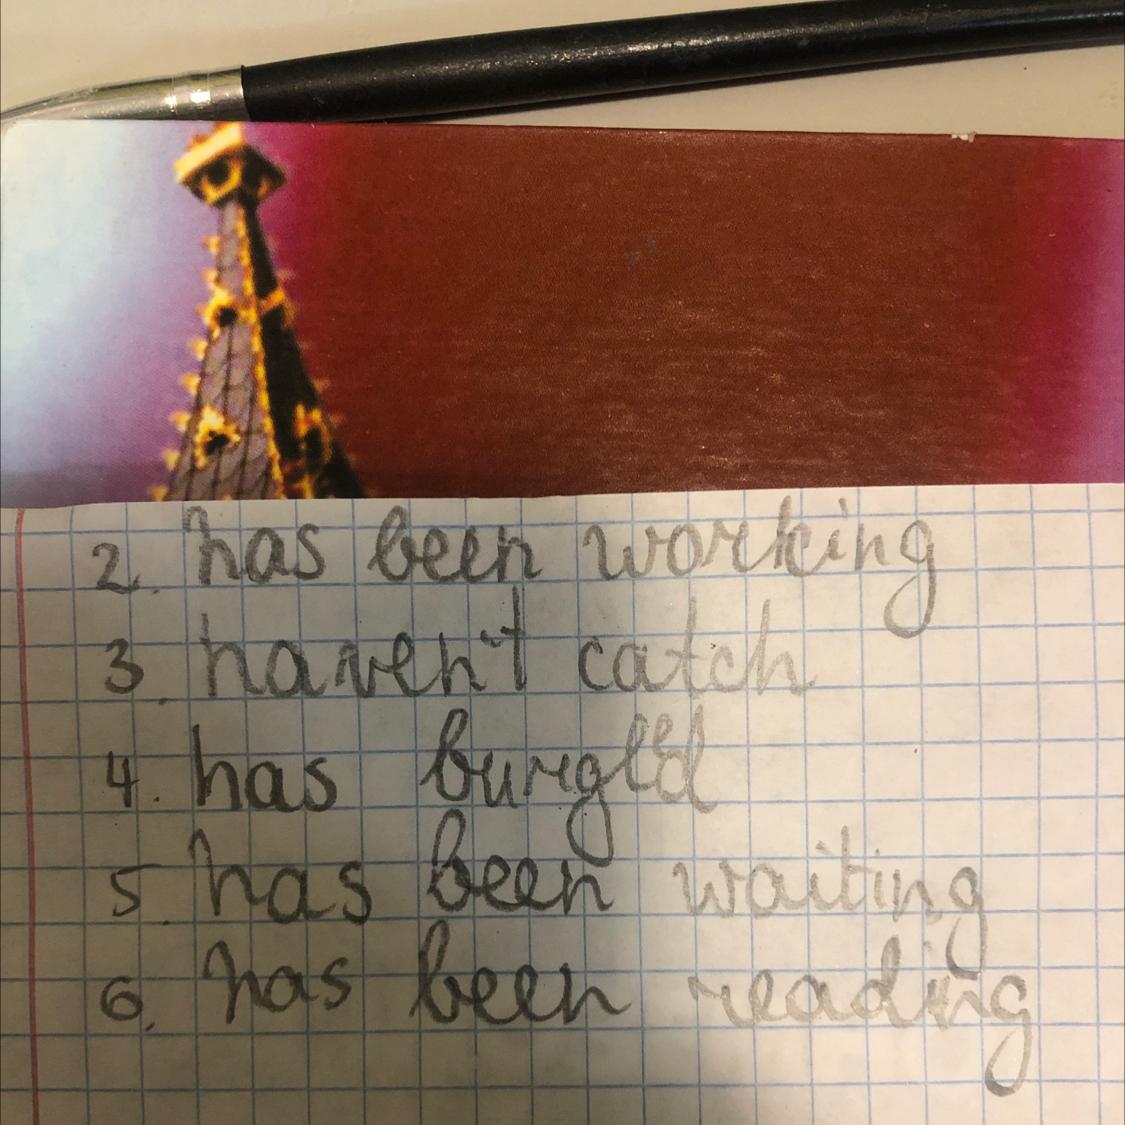 2. has been working
3. haven't catch
4. has burgled
5. has been waiting
6. has been reading